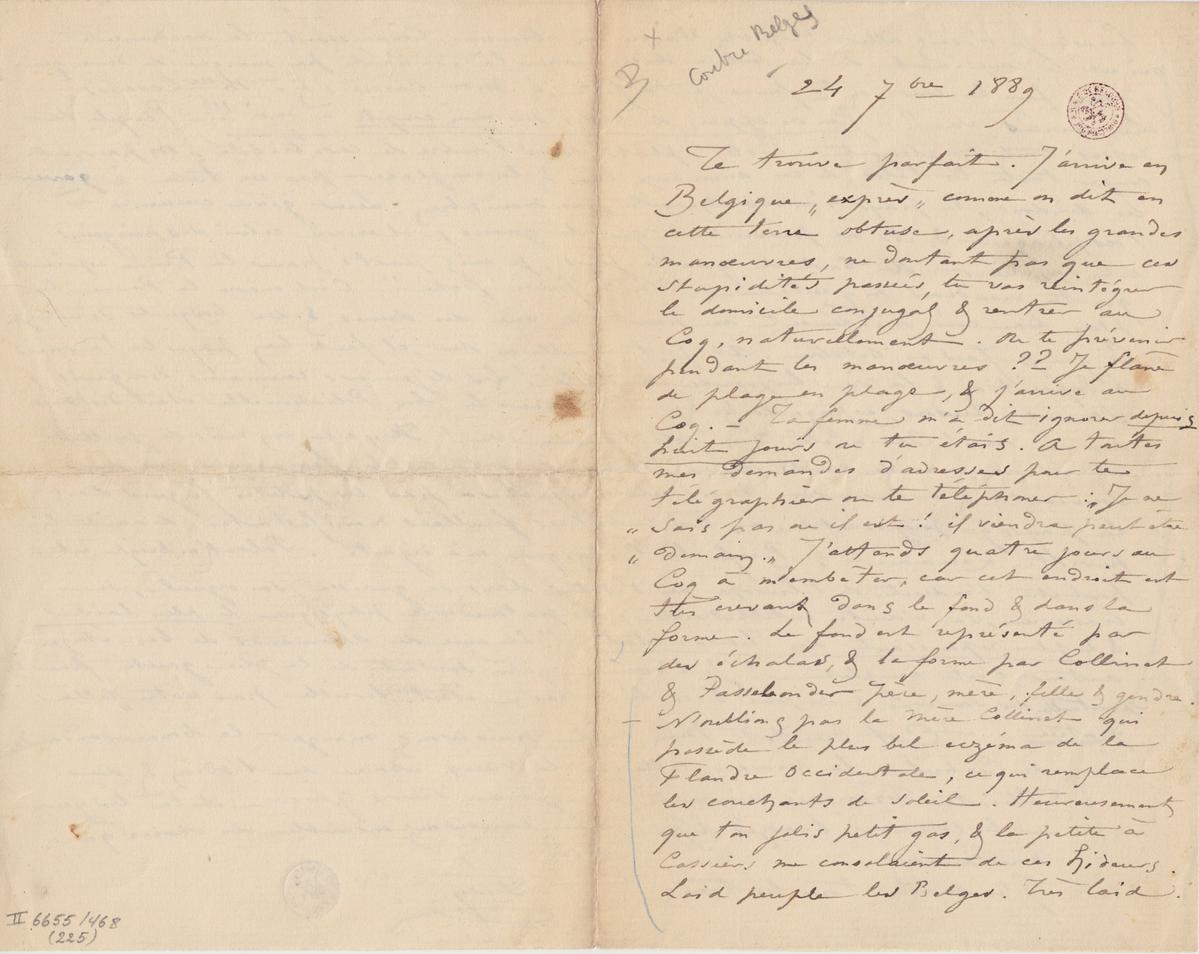 contre Belges
24 7bre 1889
Te trouve parfait. J'arrive en
Belgique „exprès„ comme on dit en
cette terre obtuse, après les grandes
manœuvres, ne doutant pas que ces
stupidités passées, tu vas réintégrer
le domicile conjugal & rentrer au
Coq, naturellement. Ou te prévenir
pendant les manœuvres ?? Je flane
de plage en plage, & j'arrive au
Coq. – Ta femme m'a dit ignorer depuis
huit jours ou tu étais. A toutes
mes demandes d'adresses pour te
télégraphier ou te téléphoner : „Je ne
„ sais pas ou il est ! il viendra peut être
„ demain.„ J'attends quatre jours au
Coq à m'embêter, car cet endroit est
très crevant dans le fond & dans la
forme. Le fond est représenté par
des échalas, & la forme par Collinet
& Passelender père, mère, fille & gendre.
– N'oublions pas la mère Collinet qui
possède le plus bel eczéma de la
Flandre Occidentale, ce qui remplace
les couchants de soleil. Heureusement
que ton jolis petit gas, & la petite à
Cassiers me consolaient de ces hideurs.
Laid peuple les Belges. Très laid.
II 6655/468
(225)